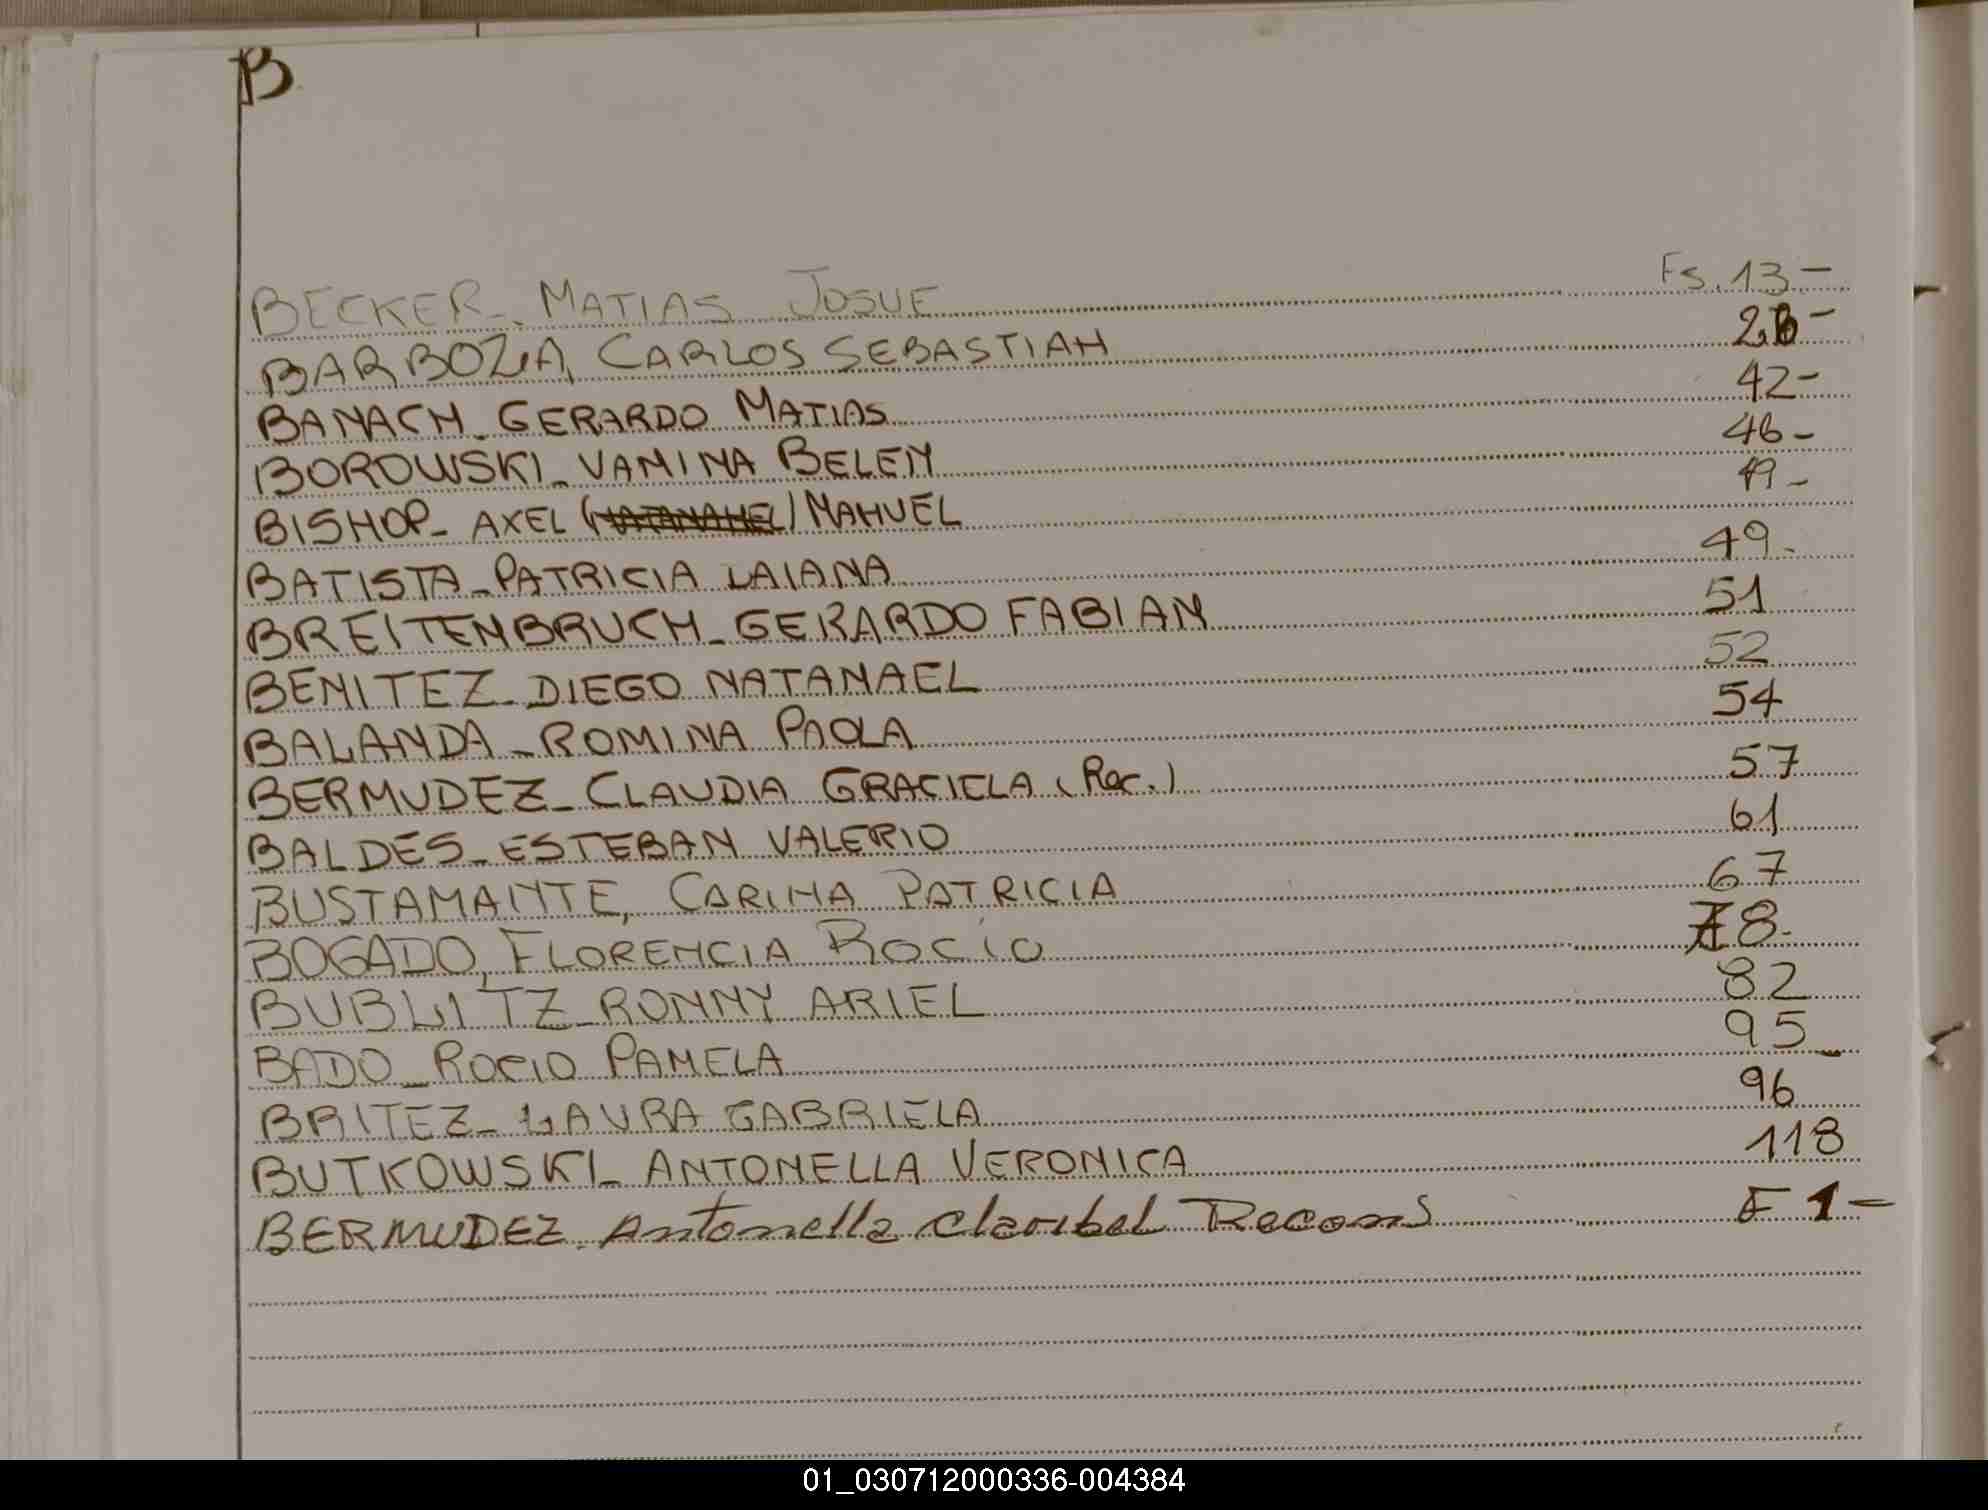 B
BECKER_ MATIAS JOSUE Fs. 13 -
BARBOZA, CARLOS SEBASTIAN 28 -
BANACH_ GERARDO MATIAS 42 -
BOROWSKI_ VANINA BELEN 46 -
BISHOP_ AXEL (NATANAHEL) NAHUEL 49 -
BATISTA_ PATRICIA LAIANA 49 -
BREITENBRUCH_ GERARDO FABIAN 51
BENITEZ_ DIEGO NATANAEL 52
BALANDA_ ROMINA PAOLA 54
BERMUDEZ_ CLAUDIA GRACIELA (Rec.) 57
BALDES_ ESTEBAN VALERIO 61
BUSTAMANTE, CARINA PATRICIA 67
BOGADO, FLORENCIA ROCÍO 78 -
BUBLITZ_ RONNY ARIEL 82
BADO_ ROCIO PAMELA 95 _
BRITEZ_ LAURA GABRIELA 96
BUTKOWSKI_ ANTONELLA VERONICA 118
BERMUDEZ. Antonella Claribel Recons F 1 -
01_030712000336-004384